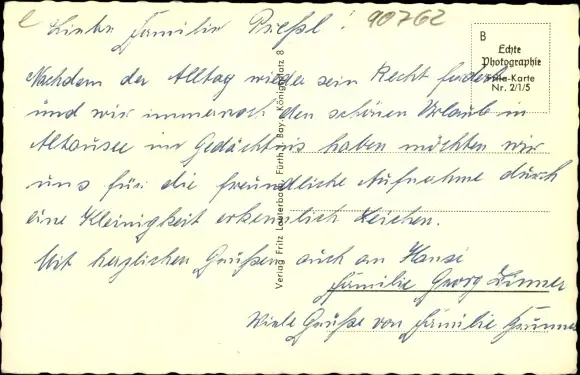 Liebe Familie Prießl! 90762
Nachdem der Alltag wieder sein Recht fordert
und wir immernoch den schönen Urlaub in
Altausee im Gedächtnis haben möchten wir
uns für die freundliche Aufnahme durch
eine Kleinigkeit erkenntlich zeichen.
Mit herzlichen Grüßen auch an Hansi
Familie Georg
Viele Grüße von Familie
B
Echte
Photographie
Frila-Karte
Nr. 2/1/5
Verlag Fritz Lauterbach, Fürth i. Bay., Königsplatz 8